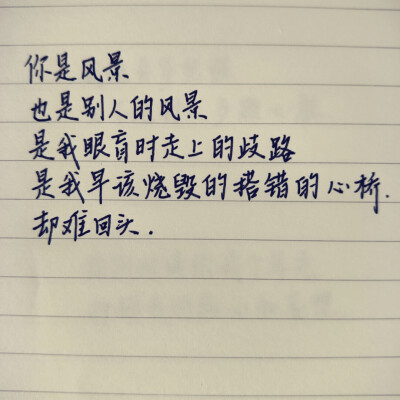 你是风景
也是别人的风景
是我眼盲时走上的歧路
是我早该烧毁的搭错的心桥.
却难回头.